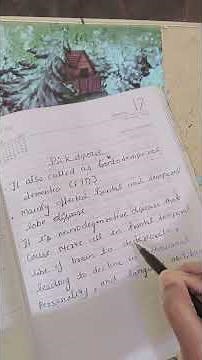 Pick disease
It also called as fronto temporal
dementia (FTD)
mainly effected frontal and temporal
lobe disease
It is neurodegenerative disease that
cause nerve cell in frontal temporal
lobe of brain to
leading to decline in
Personality, and language